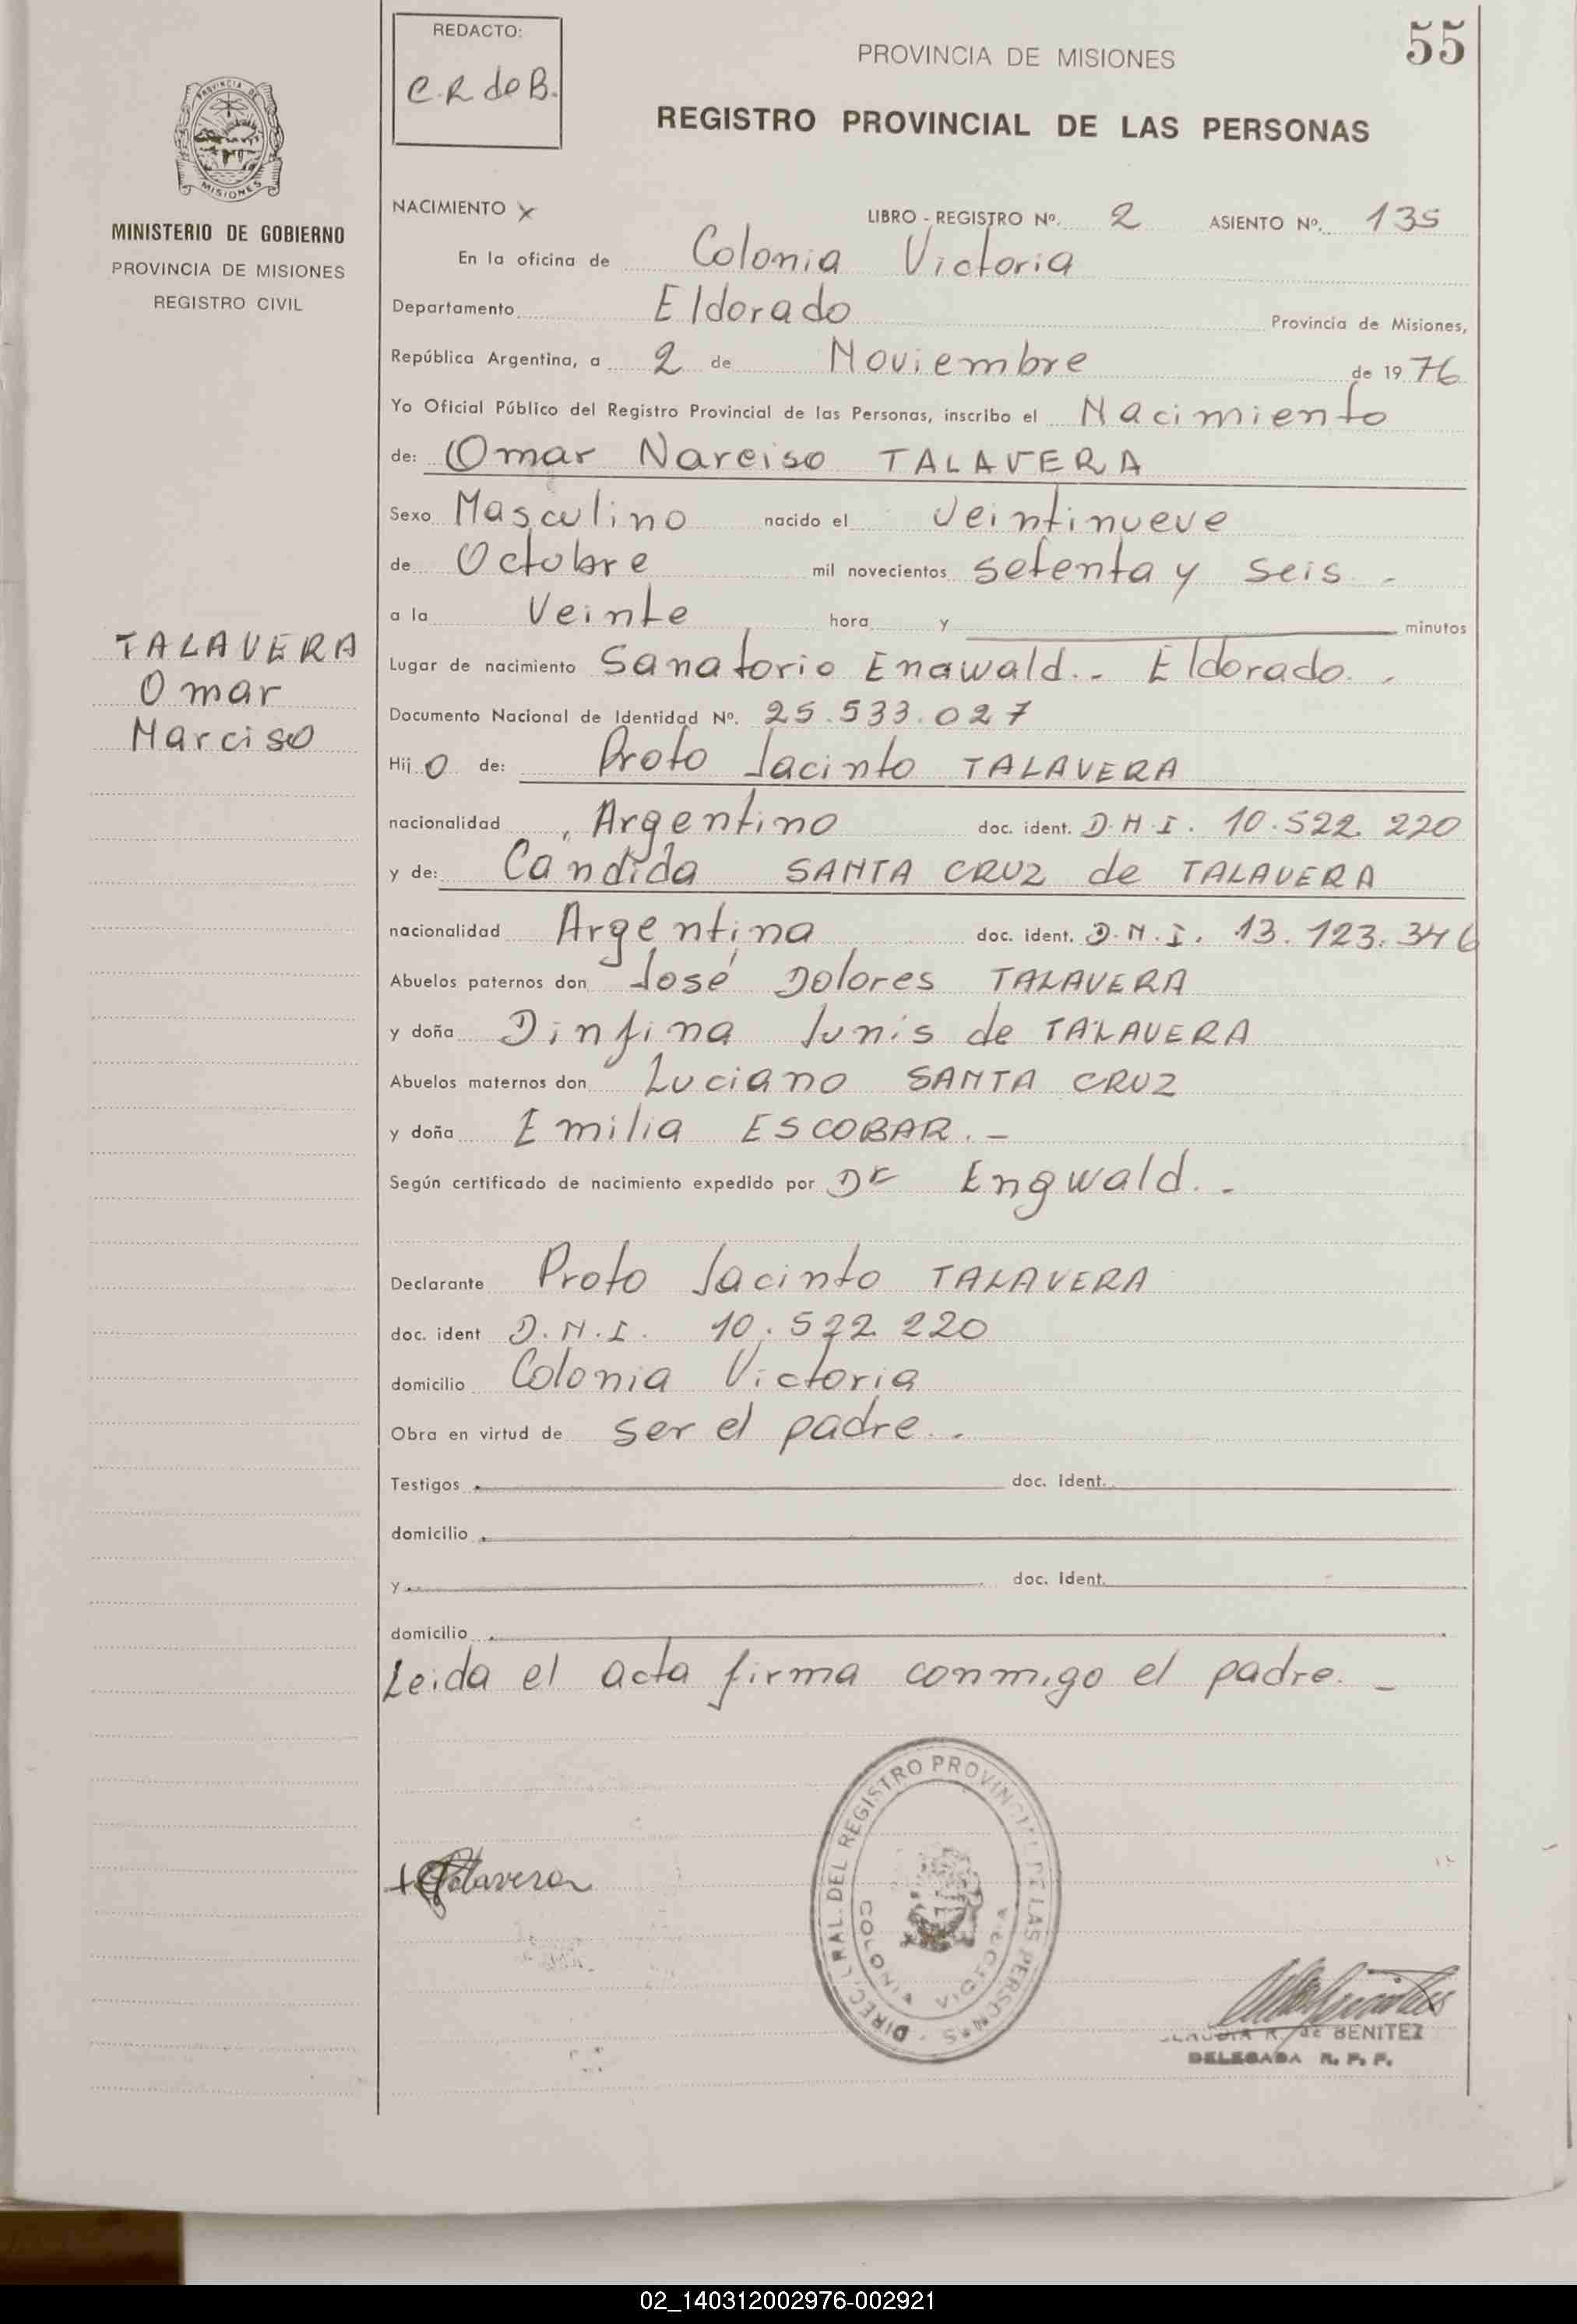 REDACTO:
C.R de B.
PROVINCIA DE MISIONES
55
REGISTRO PROVINCIAL DE LAS PERSONAS
PROVINCIA DE
MISIONES
MINISTERIO DE GOBIERNO
PROVINCIA DE MISIONES
REGISTRO CIVIL
NACIMIENTO X
LIBRO - REGISTRO Nº. 2 ASIENTO Nº. 135
En la oficina de Colonia Victoria
Departamento Eldorado Provincia de Misiones,
República Argentina, a 2 de Noviembre de 1976
Yo Oficial Público del Registro Provincial de las Personas, inscribo el Nacimiento
de: Omar Narciso TALAVERA
Sexo Masculino nacido el veintinueve
de Octubre mil novecientos setenta y seis. -
a la Veinte hora y minutos
TALAVERA
Omar
Narciso
Lugar de nacimiento Sanatorio Engwald. - Eldorado. -
Documento Nacional de Identidad Nº. 25.533.027
Hij o de: Proto Jacinto TALAVERA
nacionalidad Argentino doc. ident. D.N.I. 10.522.220
y de: Cándida SANTA CRUZ de TALAVERA
nacionalidad Argentina doc. ident. D.N.I. 13.123.346
Abuelos paternos don José Dolores TALAVERA
y doña de TALAVERA
Abuelos maternos don Luciano SANTA CRUZ
y doña Emilia ESCOBAR. -
Según certificado de nacimiento expedido por Dr Engwald. -
Declarante Proto Jacinto TALAVERA
doc. ident D.N.I. 10.522.220
domicilio Colonia Victoria
Obra en virtud de ser el padre. -
Testigos doc. ident.
domicilio
y doc. ident.
domicilio
Leida el acta firma conmigo el padre. -
DIREC. GRAL. DEL REGISTRO PROVINCIAL DE LAS PERSONAS
COLONIA VICTORIA
Talavera
CLAUDIA R. de BENITEZ
DELEGADA R. P. P.
02_140312002976-002921